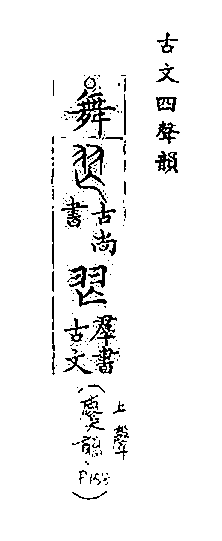 古文四聲韻
舞
古尚
書
羣書
古文
上聲
麌韻